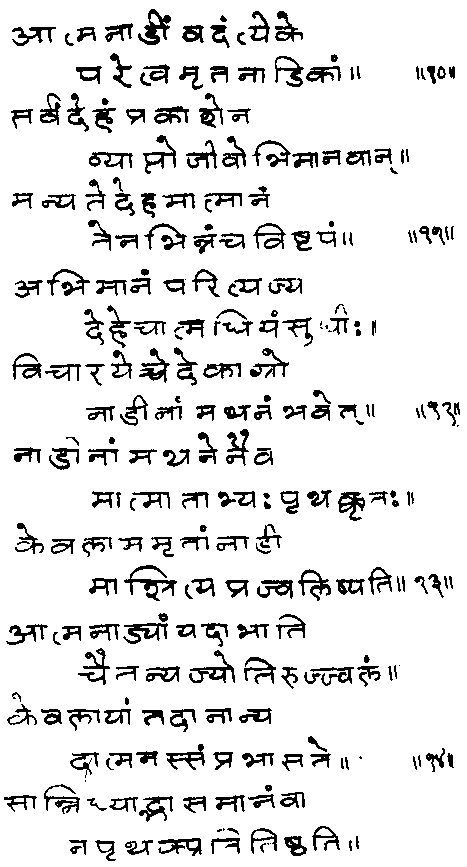 आत्मनाडीं वदंत्येके
परेत्वमृतनाडिकां॥ ॥१०॥
सर्वंदेहं प्रकाशेन
व्याप्तो जीवोभिमानवान्॥
मन्यते देहमात्मानं
तेनभिन्नंच विष्टपं॥ ॥११॥
अभिमानं परित्यज्य
देहेचात्मधियं सुधीः॥
विचारयेच्चेदेकाग्रो
नाडीनां मथनं भवेत्॥ ॥१२॥
नाडीनां मथनेनैव
मात्माताभ्यः पृथक्कृतः॥
केवलाममृतां नाडी
माश्रित्य प्रज्वलिष्यति॥ १३॥
आत्मनाड्यां यदाभाति
चैतन्यज्योतिरुज्ज्वलं॥
केवलायां तदानान्य
दात्मनस्संप्रभासते॥ ॥१४॥
सान्निध्याद्भासमानंवा
नपृथक्प्रतितिष्ठति॥